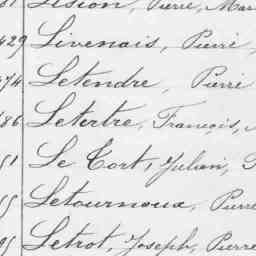 Lision, Pierre, Mar
429 Livenais, Pierre,
474 Letendre, Pierre
486 Letertre, François,
51 Le Tort, Julien,
55 Letournoux, Pierre
95 Letrot, Joseph, Pierre